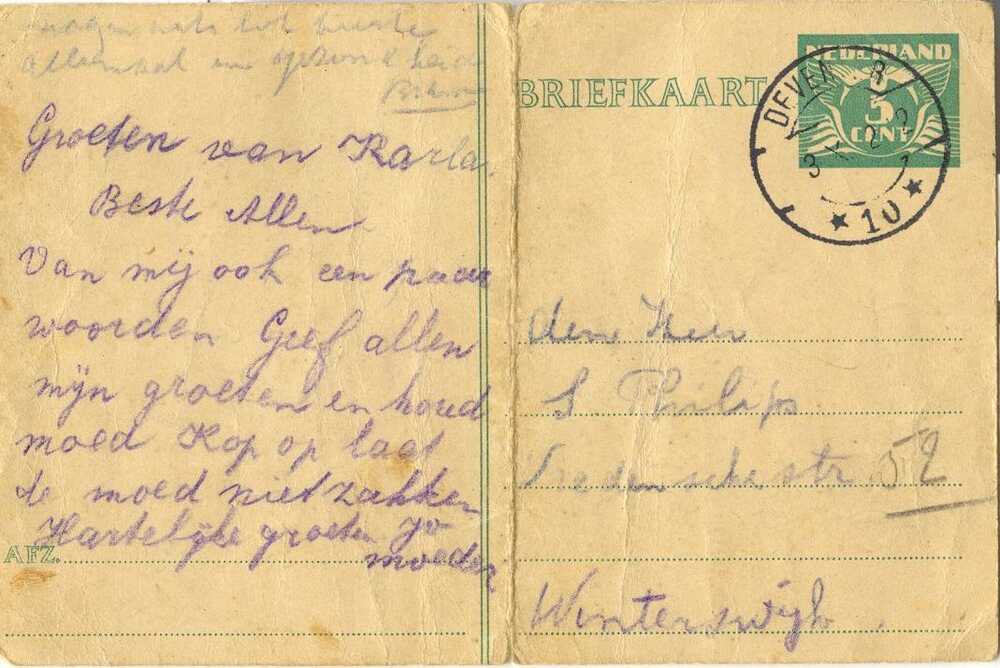 morgen
allemaal een gezondheid
Groeten van Karla.
Beste Allen
Van mij ook een paar
woorden Geef allen
mijn groeten en houd
moed Kop op laat
de moed niet zakken
Hartelijke groeten Jo
moeder
AFZ.
BRIEFKAART
NEDERLAND
5
CENT
DEVEN R
3 X
★ 10 ★
den Heer
S. Philips
Vredenschestr 52
Winterswijk